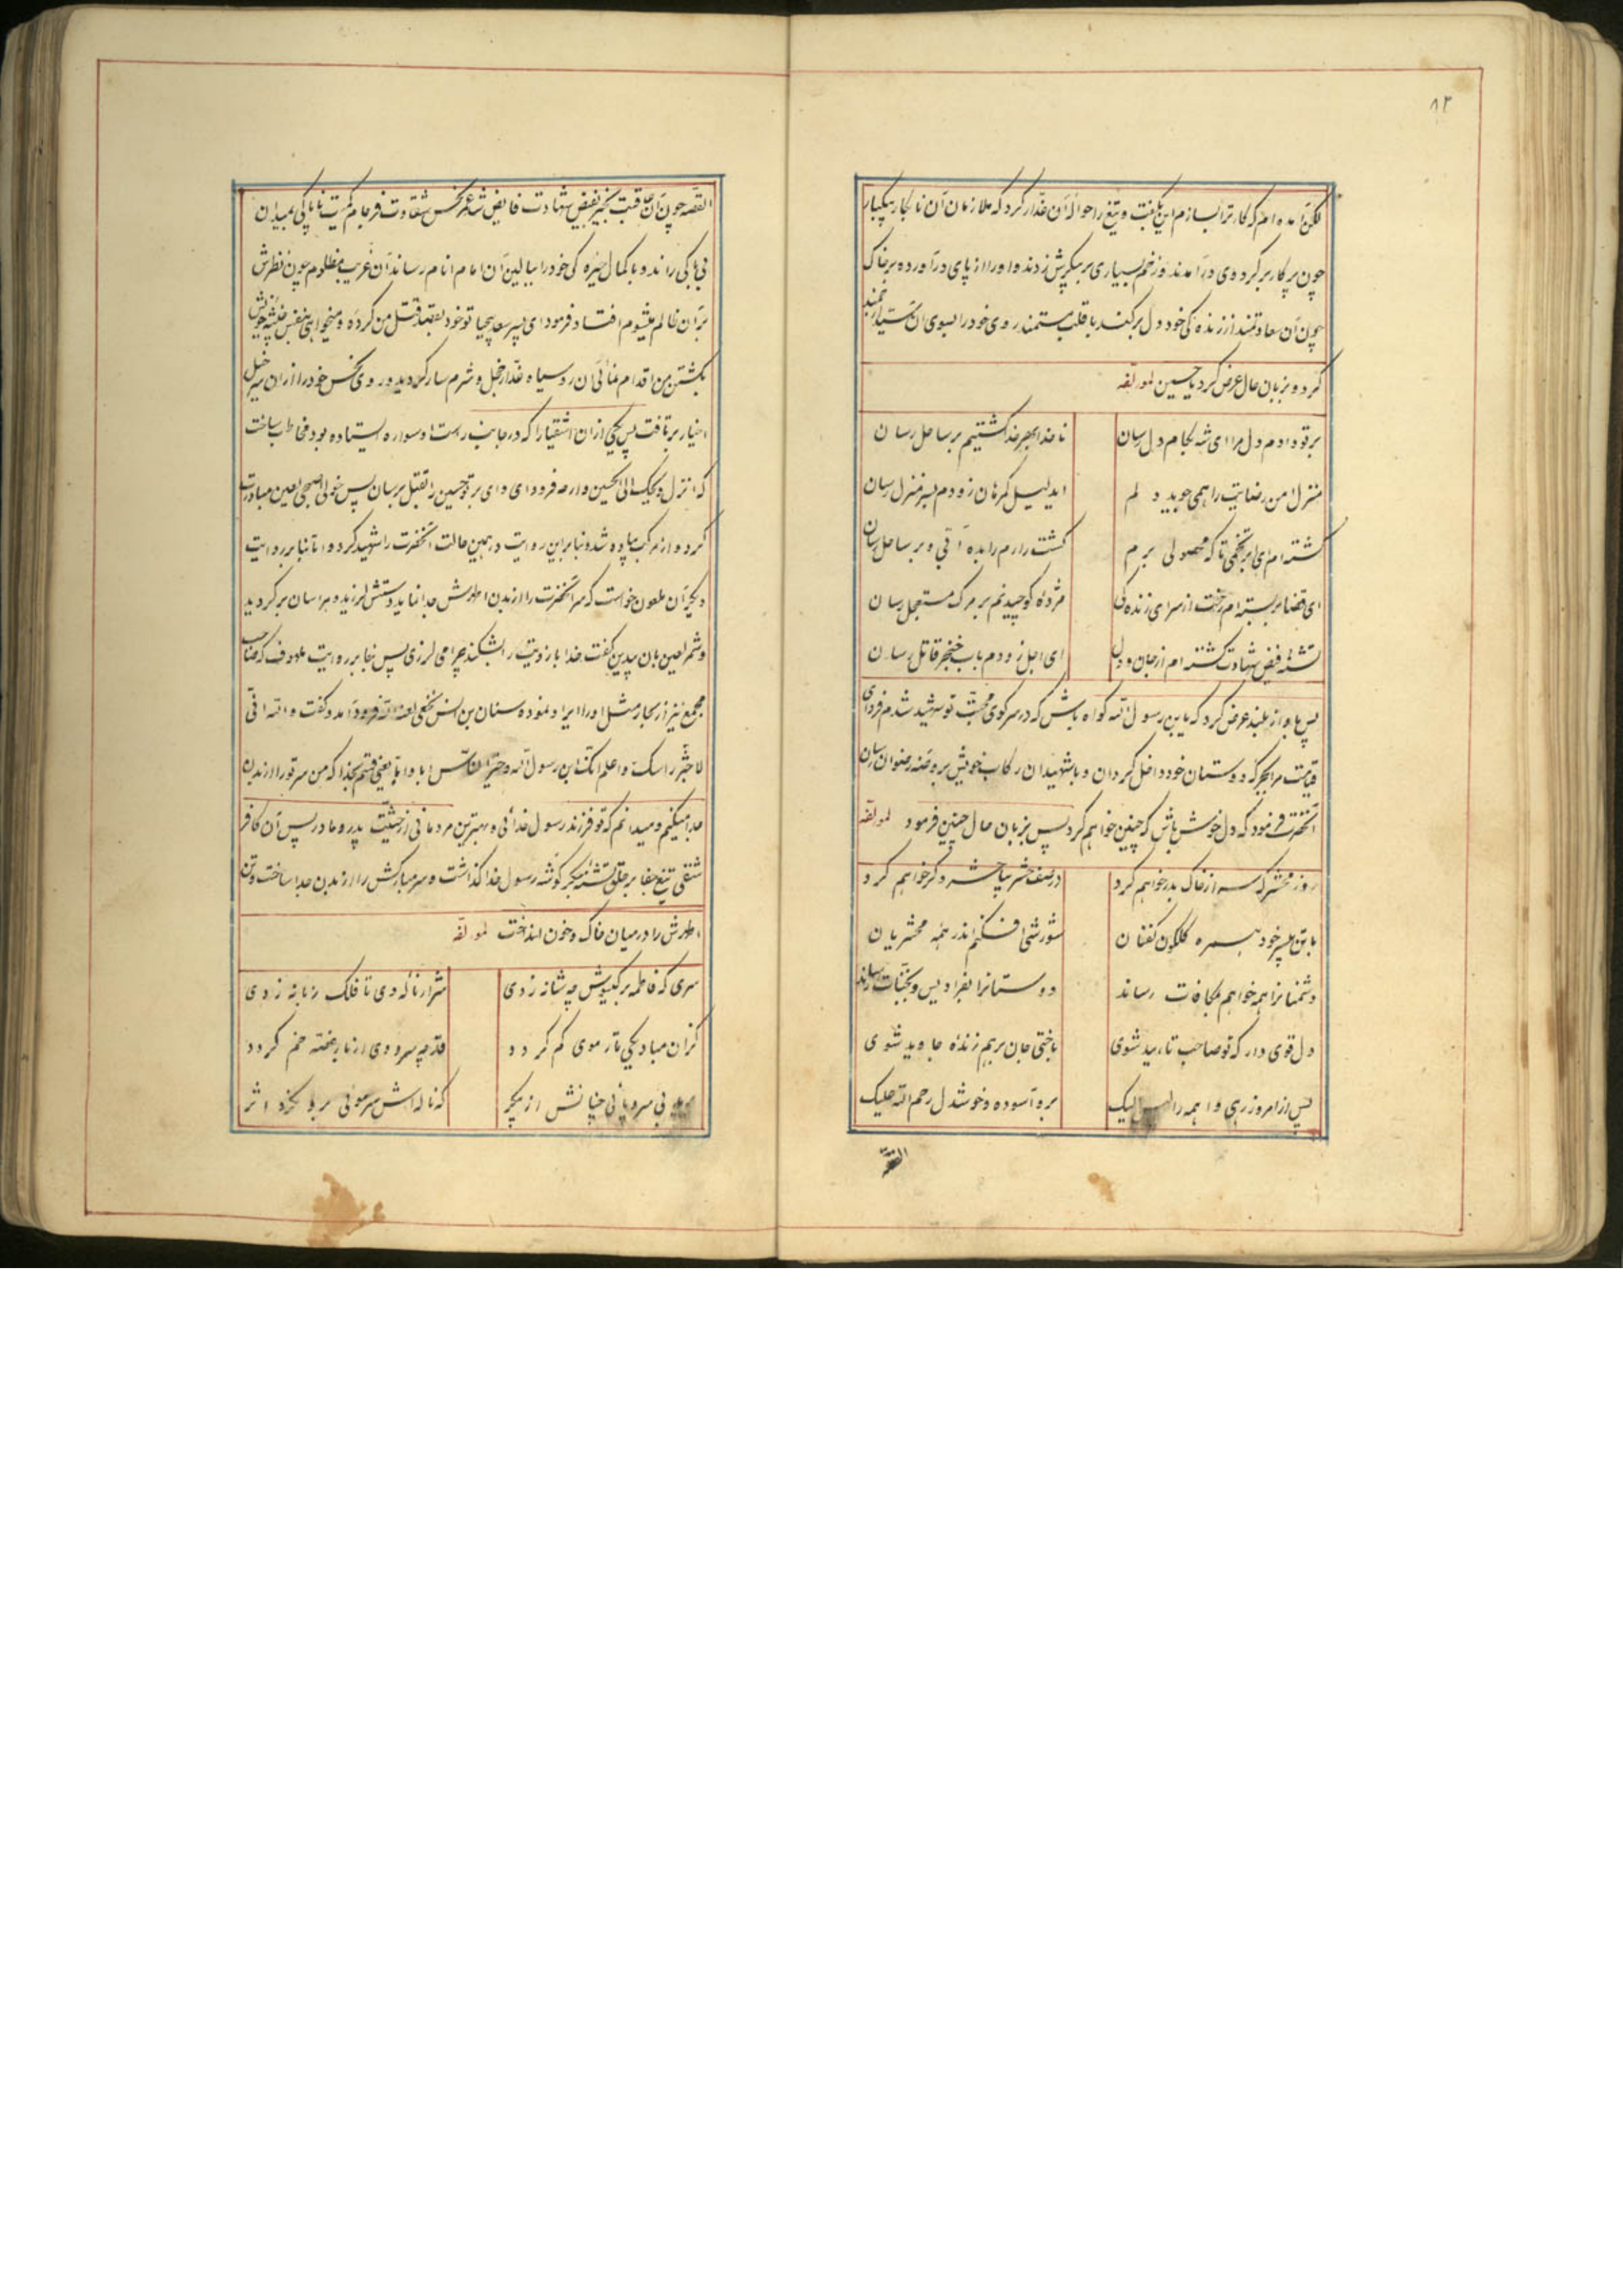 ۸۲
لکن آمده‌ام که کار ترا بسازم این بگفت و تیغ را حواله آن غدّار کرد که ملازمان آن نابکار بیکبار
چون پرکار بر گرد وی درآمدند و زخم بسیاری بر پیکرش زدند و او را از پای درآورده بر خاک
چون آن سعادتمند از زنده‌کی خود دل برکند با قلب مستمند روی خود را بسوی آن سیّد ارجمند
کرد و بزبان حال عرض کرد یا حسین لمولفه
بر تو دادم دل مرا ای شه بکام دل رسان
ناخدا بهر خدا کشتیم بر ساحل رسان
منزل امن رضایت را همی جوید دلم
ایدلیل گمرهان زودم بسر منزل رسان
کشته‌ام ای ابر تخمی تا که محصولی برم
کشت زارم را بده آبی و بر ساحل رسان
ای قضا بر بسته‌ام رخت از سرای زنده‌کی
مژدهٔ کوچیدنم بر مرک مستعجل رسان
تشنهٔ فیض شهادت کشته‌ام از جان و دل
ای اجل زودم باب خنجر قاتل رسان
پس بآواز بلند عرض کرد که یابن رسول الله کواه باش که در سرکوی محبّت تو شهید شدم فردای
قیامت مرا بجرکه دوستان خود داخل کردان و با شهیدان رکاب خویش بروضه رضوان رسان
آنحضرت فرمود که دل خوش باش که چنین خواهم کرد پس بزبان حال چنین فرمود لمولفه
روز محشر که سر از خاک بدر خواهم کرد
در صف حشر بپا حشر دکر خواهم کرد
با تن بیسر خود همره کلکون کفنان
شورشی افکنم اندر همه محشریان
دشمنانرا همه خواهم بمکافات رساند
دوستانرا بفرادیس و بجنّات رساند
دل قوی دار که تو صاحب تایید شوی
باختی جان برهم زندهٔ جاوید شوی
پس از امروز رهی واهمه را لیک
برو آسوده و خوشدل رحم الله علیک
القصّه
القصّه چون آن عاقبت بخیر بفیض شهادت فایض شد عمر نحس شقاوت فرجام کمیت ناپاکی بمیدان
بی‌باکی راند و با کمال خیره‌کی خود را ببالین آن امام انام رساند آن غریب مظلوم چون نظرش
بر آن ظالم میشوم افتاد فرمود ای پسر سعد بیحیا تو خود بقصد قتل من کرده و میخواهی بنفس خبیثه خویش
بکشتن من اقدام نمائی آن رو سیاه غدّار خجل و شرمسار کردید و روی نحس خود را از آن سرخیل
اخیار برتافت پس یکی از آن اشقیا را که در جانب راست او سواره ایستاده بود مخاطب ساخت
که انزل ویحک الی الحسین و ارحه فرود ای وای بر تو حسین را بقتل برسان پس خولی اصبحی لعین مبادرت
کرد و از مرکب پیاده شد و بنا براین روایت در همین حالت آنحضرت را شهید کرد و اما بنا بر روایت
دیکر آن ملعون خواست که سر آنحضرت را از بدن اطهرش جدا نماید دستش لرزید و هراسان برکردید
و شمر لعین بآن پلید گفت خدا بازویت را بشکند چرا می‌لرزی پس بنا بر روایت ملهوف که صاحب
مجمع نیز از بحار مثل او را ایراد نموده و سنان بن انس نخعی لعنه الله فرود آمد و گفت والله انی
لاجتز راسک و اعلم انک ابن رسول الله و خیر النّاس ابا و امّا یعنی قسم بخدا که من سر تو را از بدن
جدا میکنم و میدانم که تو فرزند رسول خدائی و بهترین مردمانی از حیثیّت پدر و مادر پس آن کافر
شقی تیغ جفا بر حلق تشنه جگر کوشه رسول خدا گذاشت و سر مبارکش را از بدن جدا ساخت و تن
اطهرش را در میان خاک و خون انداخت لمولفه
سری که فاطمه بر گیسویش چه شانه زدی
شرار ناله وی تا فلک زبانه زدی
کزان مباد یکی تار موی کم کردد
قد چه سرو وی از بار غصّه خم کردد
بی سروپائی چنانش از پیکر
که ناله‌اش سر موئی بر او نکرد اثر